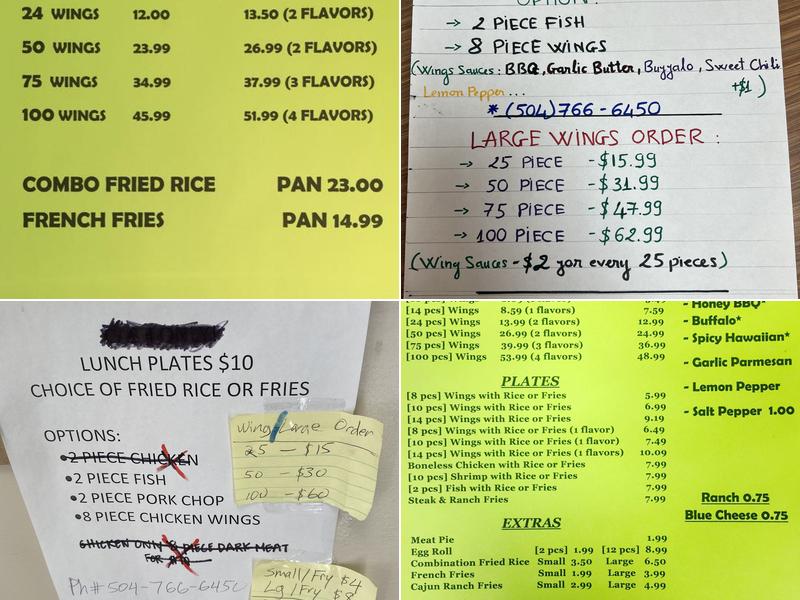 24 WINGS 12.00 13.50 (2 FLAVORS)
50 WINGS 23.99 26.99 (2 FLAVORS)
75 WINGS 34.99 37.99 (3 FLAVORS)
100 WINGS 45.99 51.99 (4 FLAVORS)
COMBO FRIED RICE PAN 23.00
FRENCH FRIES PAN 14.99
OPTION:
→ 2 PIECE FISH
→ 8 PIECE WINGS
(Wings Sauces: BBQ, Garlic Butter, Buyyalo, Sweet Chili
Lemon Pepper... +$1)
* (504)766-6450
LARGE WINGS ORDER:
→ 25 PIECE -$15.99
→ 50 PIECE -$31.99
→ 75 PIECE -$47.99
→ 100 PIECE -$62.99
(Wing Sauces - $2 yor every 25 pieces)
LUNCH PLATES $10
CHOICE OF FRIED RICE OR FRIES
OPTIONS:
•2 PIECE CHICKEN
•2 PIECE FISH
•2 PIECE PORK CHOP
•8 PIECE CHICKEN WINGS
CHICKEN ONLY PIECE DARK MEAT
FOR $10
Ph# 504-766-6450
Wing/Large Order
25 - $15
50 - $30
100 - $60
Small/Fry $4
Lg/Fry $8
[14 pcs] Wings 8.59 (1 flavors) 7.59
[24 pcs] Wings 13.99 (2 flavors) 12.99
[50 pcs] Wings 26.99 (2 flavors) 24.99
[75 pcs] Wings 39.99 (3 flavors) 36.99
[100 pcs] Wings 53.99 (4 flavors) 48.99
PLATES
[8 pcs] Wings with Rice or Fries 5.99
[10 pcs] Wings with Rice or Fries 6.99
[14 pcs] Wings with Rice or Fries 9.19
[8 pcs] Wings with Rice or Fries (1 flavor) 6.49
[10 pcs] Wings with Rice or Fries (1 flavor) 7.49
[14 pcs] Wings with Rice or Fries (1 flavor) 10.09
Boneless Chicken with Rice or Fries 7.99
[10 pcs] Shrimp with Rice or Fries 7.99
[2 pcs] Fish with Rice or Fries 7.99
Steak & Ranch Fries 7.99
EXTRAS
Meat Pie 1.99
Egg Roll [2 pcs] 1.99 [12 pcs] 8.99
Combination Fried Rice Small 3.50 Large 6.50
French Fries Small 1.99 Large 3.99
Cajun Ranch Fries Small 2.99 Large 4.99
- Honey BBQ*
- Buffalo*
- Spicy Hawaiian*
- Garlic Parmesan
- Lemon Pepper
- Salt Pepper 1.00
Ranch 0.75
Blue Cheese 0.75